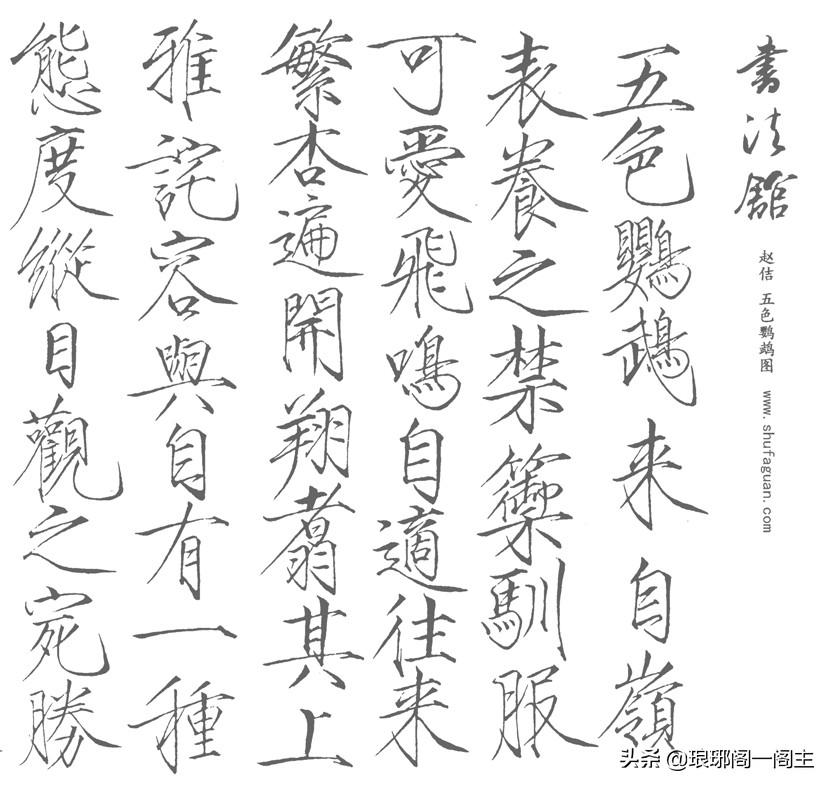 書法舘
赵佶 五色鹦鹉图 www.shufaguan.com
五色鸚鵡来自嶺
表養之禁籞馴服
可愛飛鳴自適往来
繁杏遍開翔翥其上
雅詫容與自有一種
態度縱目觀之宛勝
头条 @琅琊阁一阁主